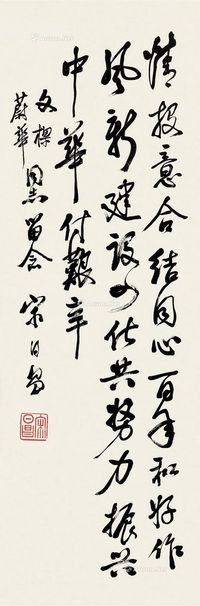 情投意合结同心百年和好作
风新建设四化共努力振兴
中华付艰辛
文樑
蔚华同志留念
宋日昌